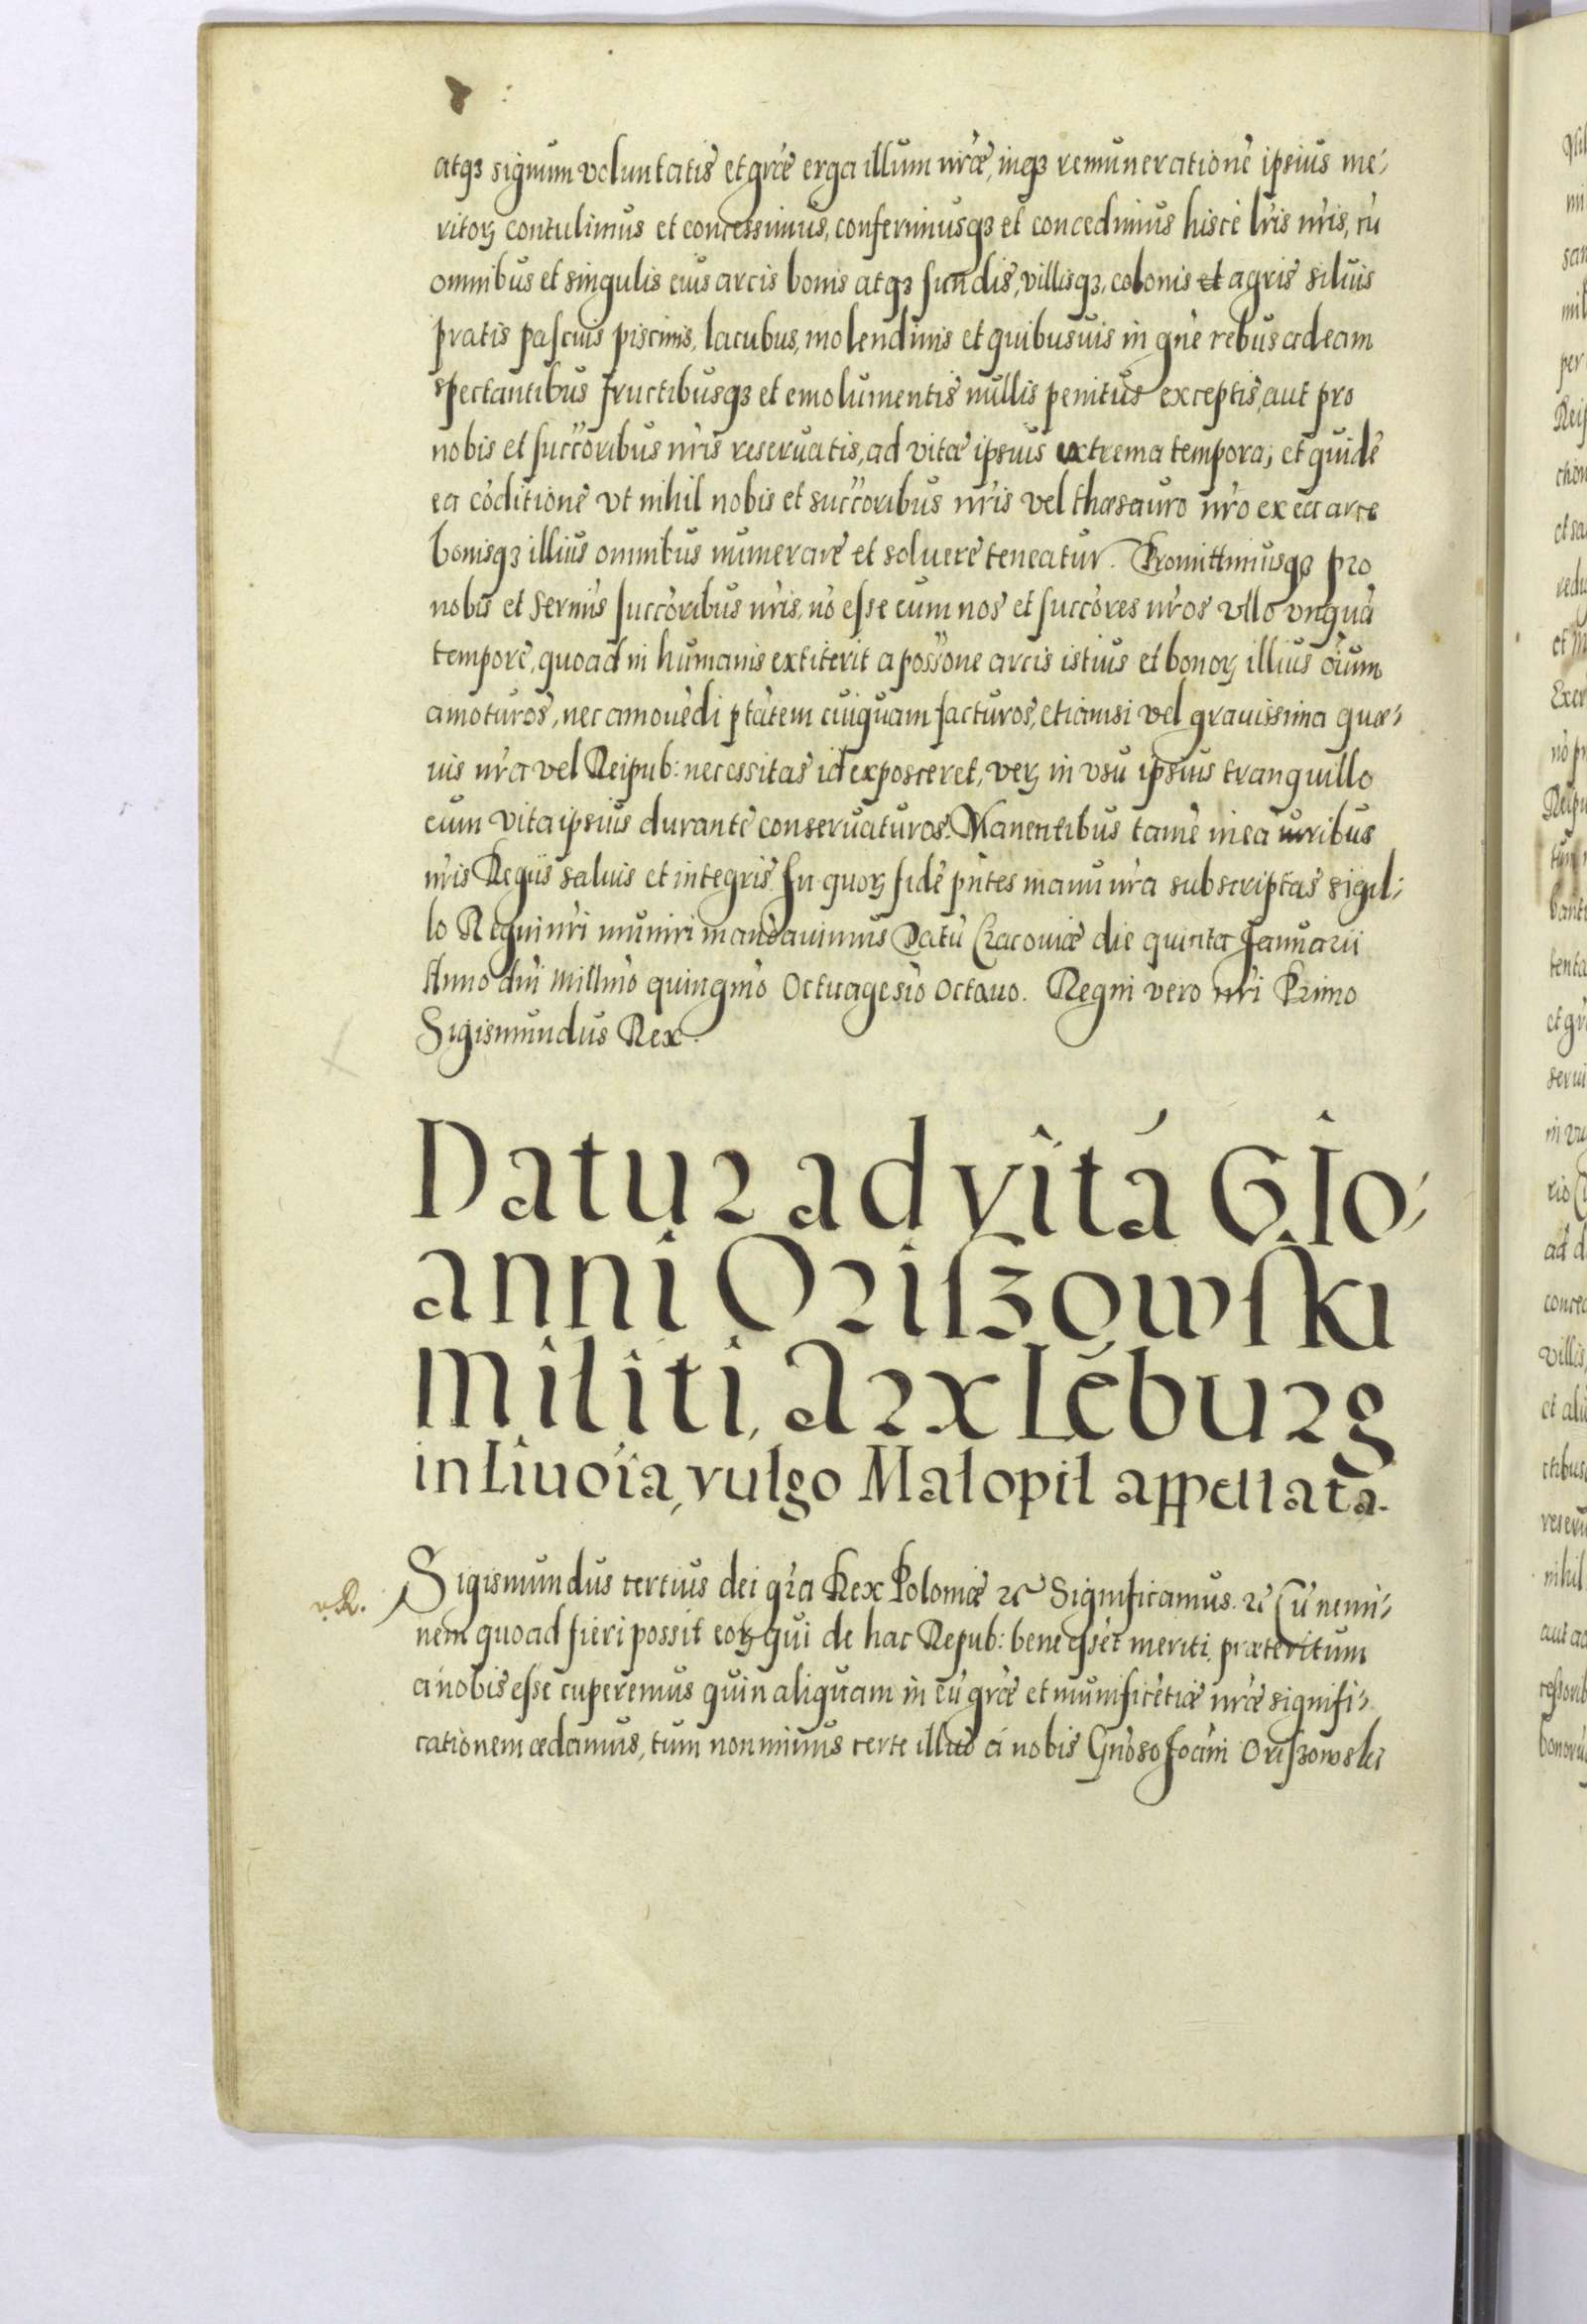 atqȝ signum voluntatis et gr̃æ erga illum nr̃æ, inqȝ remunerationẽ ipsius me-
ritoꝝ contulimus et concessimus, conferimusqȝ et concedimus hisce lr̃is nr̃is, cũ
omnibus et singulis eius arcis bonis atqȝ fundis, villisqȝ, colonis et agris siluis
pratis pascuis piscinis, lacubus, molendinis et quibusuis in gñe rebus ad eam
spectantibus fructibusqȝ et emolumentis nullis penitus exceptis, aut pro
nobis et succ̃oribus nr̃is reseruatis, ad vitæ ipsius extrema tempora, et quidẽ
ea cõditione vt nihil nobis et succ̃oribus nr̃is vel thæsauro nr̃o ex ea arce
bonisqȝ illius omnibus numerare et soluere teneatur. Promittimusqȝ pro
nobis et Sermis succ̃oribus nr̃is, nõ esse eum nos et succ̃ores nr̃os vllo vnquã
tempore, quoad in humanis extiterit a poss̃one arcis istius et bonoꝝ illius oĩum
amoturos, nec amouẽdi ptãtem cuiquam facturos, etiamsi vel grauissima quæ-
uis nr̃a vel Reipub: necessitas id exposceret, veꝝ in vsu ipsius tranquillo
eum vita ipsius durante conseruaturos. Manentibus tamẽ in ea iuribus
nr̃is Regiis saluis et integris. In quoꝝ fidẽ pñtes manu nr̃a subscriptas sigil-
lo Regni nr̃i muniri mandauimus Datũ Cracouiæ die quinta Januarii
Anno dñi Millmõ quingmõ Octuagesiõ Octauo. Regni vero nr̃i Primo
Sigismundus Rex.
Datur ad vitã G Io-
anni Oriszowski
Militi, Arx Lẽburg
in Liuoĩa, vulgo Małopil appellata.
v. R.
Sigismundus tertius dei gr̃a Rex Poloniæ ꝛc̃ Significamus. ꝛc̃ Cũ nemi-
nem quoad fieri possit eoꝝ qui de hac Repub: bene essẽt meriti præteritum
a nobis esse cuperemus quin aliquam in eũ gr̃æ et munificẽtiæ nr̃æ signifi-
cationem ædamus, tum non minus certe a nobis Gnõso Joãni Oriszowski